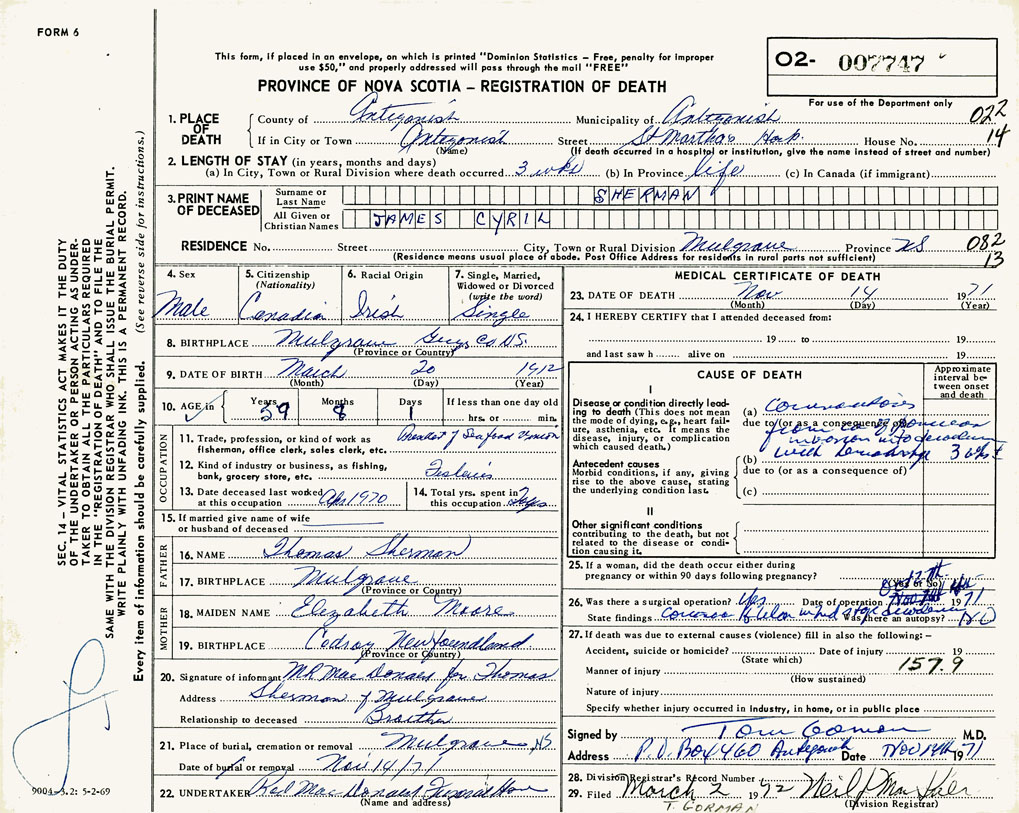 FORM 6
This form, if placed in an envelope, on which is printed "Dominion Statistics – Free, penalty for improper
use $50," and properly addressed will pass through the mail "FREE"
PROVINCE OF NOVA SCOTIA – REGISTRATION OF DEATH
02- 007747
For use of the Department only
022
14
1. PLACE OF DEATH County of Antigonish Municipality of Antigonish
If in City or Town Antigonish Street St Marthas Hosp. House No.
(Name) (If death occurred in a hospital or institution, give the name instead of street and number)
2. LENGTH OF STAY (in years, months and days)
(a) In City, Town or Rural Division where death occurred 3 wks (b) In Province life (c) In Canada (if immigrant)
3. PRINT NAME OF DECEASED
Surname or Last Name SHERMAN
All Given or Christian Names JAMES CYRIL
RESIDENCE No. Street City, Town or Rural Division Mulgrave Province NS
082
13
(Residence means usual place of abode. Post Office Address for residents in rural parts not sufficient)
SEC. 14 – VITAL STATISTICS ACT MAKES IT THE DUTY
OF THE UNDERTAKER OR PERSON ACTING AS UNDER-
TAKER TO OBTAIN ALL THE PARTICULARS REQUIRED
IN THE "REGISTRATION OF DEATH" AND TO FILE THE
SAME WITH THE DIVISION REGISTRAR WHO SHALL ISSUE THE BURIAL PERMIT.
WRITE PLAINLY WITH UNFADING INK. THIS IS A PERMANENT RECORD.
Every item of information should be carefully supplied. (See reverse side for instructions.)
4. Sex Male
5. Citizenship (Nationality) Canadian
6. Racial Origin Irish
7. Single, Married, Widowed or Divorced (write the word) Single
8. BIRTHPLACE Mulgrave Guys Co NS.
(Province or Country)
9. DATE OF BIRTH March 20 1912
(Month) (Day) (Year)
10. AGE in Years 59 Months 8 Days 1 If less than one day old
hrs. or min.
OCCUPATION
11. Trade, profession, or kind of work as
fisherman, office clerk, sales clerk, etc. President of Seafood Union
12. Kind of industry or business, as fishing,
bank, grocery store, etc.
13. Date deceased last worked
at this occupation Apr 1970
14. Total yrs. spent in
this occupation
15. If married give name of wife
or husband of deceased
FATHER
16. NAME Thomas Sherman
17. BIRTHPLACE Mulgrave
(Province or Country)
MOTHER
18. MAIDEN NAME Elizabeth Moore
19. BIRTHPLACE Codroy Newfoundland
(Province or Country)
20. Signature of informant MR MacDonald for Thomas
Address Sherman of Mulgrave
Relationship to deceased Brother
21. Place of burial, cremation or removal Mulgrave, NS
Date of burial or removal Nov 14/71
22. UNDERTAKER MacDonald Funeral Home
(Name and address)
9004-3.2: 5-2-69
MEDICAL CERTIFICATE OF DEATH
23. DATE OF DEATH Nov 14 1971
(Month) (Day) (Year)
24. I HEREBY CERTIFY that I attended deceased from:
19 to 19
and last saw h alive on 19
CAUSE OF DEATH
Approximate interval be-tween onset and death
I
Disease or condition directly lead-
ing to death (This does not mean
the mode of dying, e.g., heart fail-
ure, asthenia, etc. It means the
disease, injury, or complication
which caused death.)
(a)
due to (or as a consequence of)
from ca of pancreas
invasion into duodenum
(b) with
due to (or as a consequence of)
(c)
Antecedent causes
Morbid conditions, if any, giving
rise to the above cause, stating
the underlying condition last.
II
Other significant conditions
contributing to the death, but not
related to the disease or condi-
tion causing it.
25. If a woman, did the death occur either during
pregnancy or within 90 days following pregnancy?
(Yes or No)
26. Was there a surgical operation? Yes Date of operation 1971
State findings Was there an autopsy? NO
27. If death was due to external causes (violence) fill in also the following: –
Accident, suicide or homicide? Date of injury 19
(State which)
157.9
Manner of injury
(How sustained)
Nature of injury
Specify whether injury occurred in industry, in home, or in public place
Signed by Tom Gorman M.D.
Address P.O. Box 460 Antigonish Date Nov 14th 1971
28. Division Registrar's Record Number
29. Filed March 2 1972 Neil J Mac
(Division Registrar)
T. GORMAN